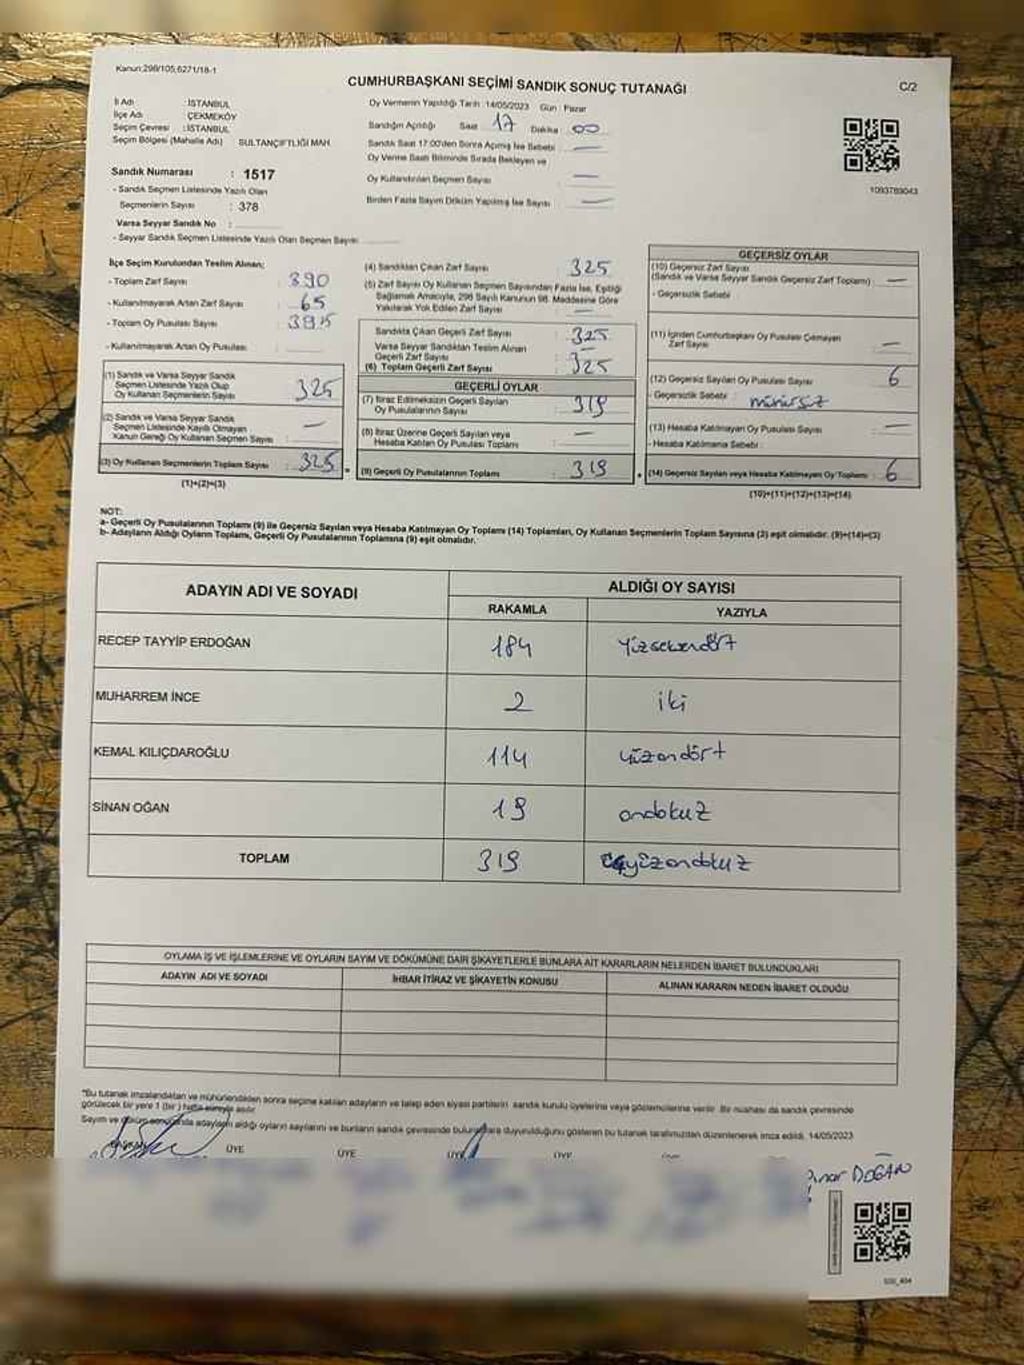 Kanun;298/105;6271/18-1
CUMHURBAŞKANI SEÇİMİ SANDIK SONUÇ TUTANAĞI
C/2
İl Adı : İSTANBUL
İlçe Adı : ÇEKMEKÖY
Seçim Çevresi : İSTANBUL
Seçim Bölgesi (Mahalle Adı) SULTANÇİFTLİĞİ MAH.
Sandık Numarası : 1517
- Sandık Seçmen Listesinde Yazılı Olan
Seçmenlerin Sayısı : 378
Varsa Seyyar Sandık No :
- Seyyar Sandık Seçmen Listesinde Yazılı Olan Seçmen Sayısı
Oy Vermenin Yapıldığı Tarih : 14/05/2023 Gün : Pazar
Sandığın Açıldığı Saat 17 Dakika 00
Sandık Saat 17:00'den Sonra Açılmış İse Sebebi : —
Oy Verme Saati Bitiminde Sırada Bekleyen ve
Oy Kullandırılan Seçmen Sayısı : —
Birden Fazla Sayım Döküm Yapılmış İse Sayısı : —
1093789043
İlçe Seçim Kurulundan Teslim Alınan;
- Toplam Zarf Sayısı : 390
- Kullanılmayarak Artan Zarf Sayısı : 65
- Toplam Oy Pusulası Sayısı :
- Kullanılmayarak Artan Oy Pusulası :
(1) Sandık ve Varsa Seyyar Sandık
Seçmen Listesinde Yazılı Olup
Oy Kullanan Seçmenlerin Sayısı : 325
(2) Sandık ve Varsa Seyyar Sandık
Seçmen Listesinde Kayıtlı Olmayan
Kanun Gereği Oy Kullanan Seçmen Sayısı : —
(3) Oy Kullanan Seçmenlerin Toplam Sayısı : 325
(1)+(2)=(3)
(4) Sandıktan Çıkan Zarf Sayısı : 325
(5) Zarf Sayısı Oy Kullanan Seçmen Sayısından Fazla İse, Eşitliği
Sağlamak Amacıyla, 298 Sayılı Kanunun 98. Maddesine Göre
Yakılarak Yok Edilen Zarf Sayısı : —
Sandıkta Çıkan Geçerli Zarf Sayısı : 325
Varsa Seyyar Sandıktan Teslim Alınan
Geçerli Zarf Sayısı : —
(6) Toplam Geçerli Zarf Sayısı : 325
GEÇERLİ OYLAR
(7) İtiraz Edilmeksizin Geçerli Sayılan
Oy Pusulalarının Sayısı : 319
(8) İtiraz Üzerine Geçerli Sayılan veya
Hesaba Katılan Oy Pusulası Toplamı : —
(9) Geçerli Oy Pusulalarının Toplamı : 319
GEÇERSİZ OYLAR
(10) Geçersiz Zarf Sayısı
(Sandık ve Varsa Seyyar Sandık Geçersiz Zarf Toplamı) : —
- Geçersizlik Sebebi :
(11) İçinden Cumhurbaşkanı Oy Pusulası Çıkmayan
Zarf Sayısı : —
(12) Geçersiz Sayılan Oy Pusulası Sayısı : 6
- Geçersizlik Sebebi : mühürsüz
(13) Hesaba Katılmayan Oy Pusulası Sayısı : —
- Hesaba Katılmama Sebebi :
(14) Geçersiz Sayılan veya Hesaba Katılmayan Oy Toplamı : 6
(10)+(11)+(12)+(13)=(14)
NOT:
a- Geçerli Oy Pusulalarının Toplamı (9) ile Geçersiz Sayılan veya Hesaba Katılmayan Oy Toplamı (14) Toplamları, Oy Kullanan Seçmenlerin Toplam Sayısına (3) eşit olmalıdır. (9)+(14)=(3)
b- Adayların Aldığı Oyların Toplamı, Geçerli Oy Pusulalarının Toplamına (9) eşit olmalıdır.
ADAYIN ADI VE SOYADI ALDIĞI OY SAYISI
RAKAMLA YAZIYLA
RECEP TAYYİP ERDOĞAN 184 yüzseksendört
MUHARREM İNCE 2 iki
KEMAL KILIÇDAROĞLU 114 yüzondört
SİNAN OĞAN 19 ondokuz
TOPLAM 319 üçyüzondokuz
OYLAMA İŞ VE İŞLEMLERİNE VE OYLARIN SAYIM VE DÖKÜMÜNE DAİR ŞİKAYETLERLE BUNLARA AİT KARARLARIN NELERDEN İBARET BULUNDUKLARI
ADAYIN ADI VE SOYADI İHBAR İTİRAZ VE ŞİKAYETİN KONUSU ALINAN KARARIN NEDEN İBARET OLDUĞU
*Bu tutanak imzalandıktan ve mühürlendikten sonra seçime katılan adayların ve talep eden siyasi partilerin sandık kurulu üyelerine veya gözlemcilerine verilir. Bir nüshası da sandık çevresinde
görülecek bir yere 1 (bir) hafta süreyle asılır.
Sayım ve döküm sonucunda adayların aldığı oyların sayılarını ve bunların sandık çevresinde bulunanlara duyurulduğunu gösteren bu tutanak tarafımızdan düzenlenerek imza edildi. 14/05/2023
BAŞKAN ÜYE ÜYE ÜYE ÜYE
Pınar DOĞAN